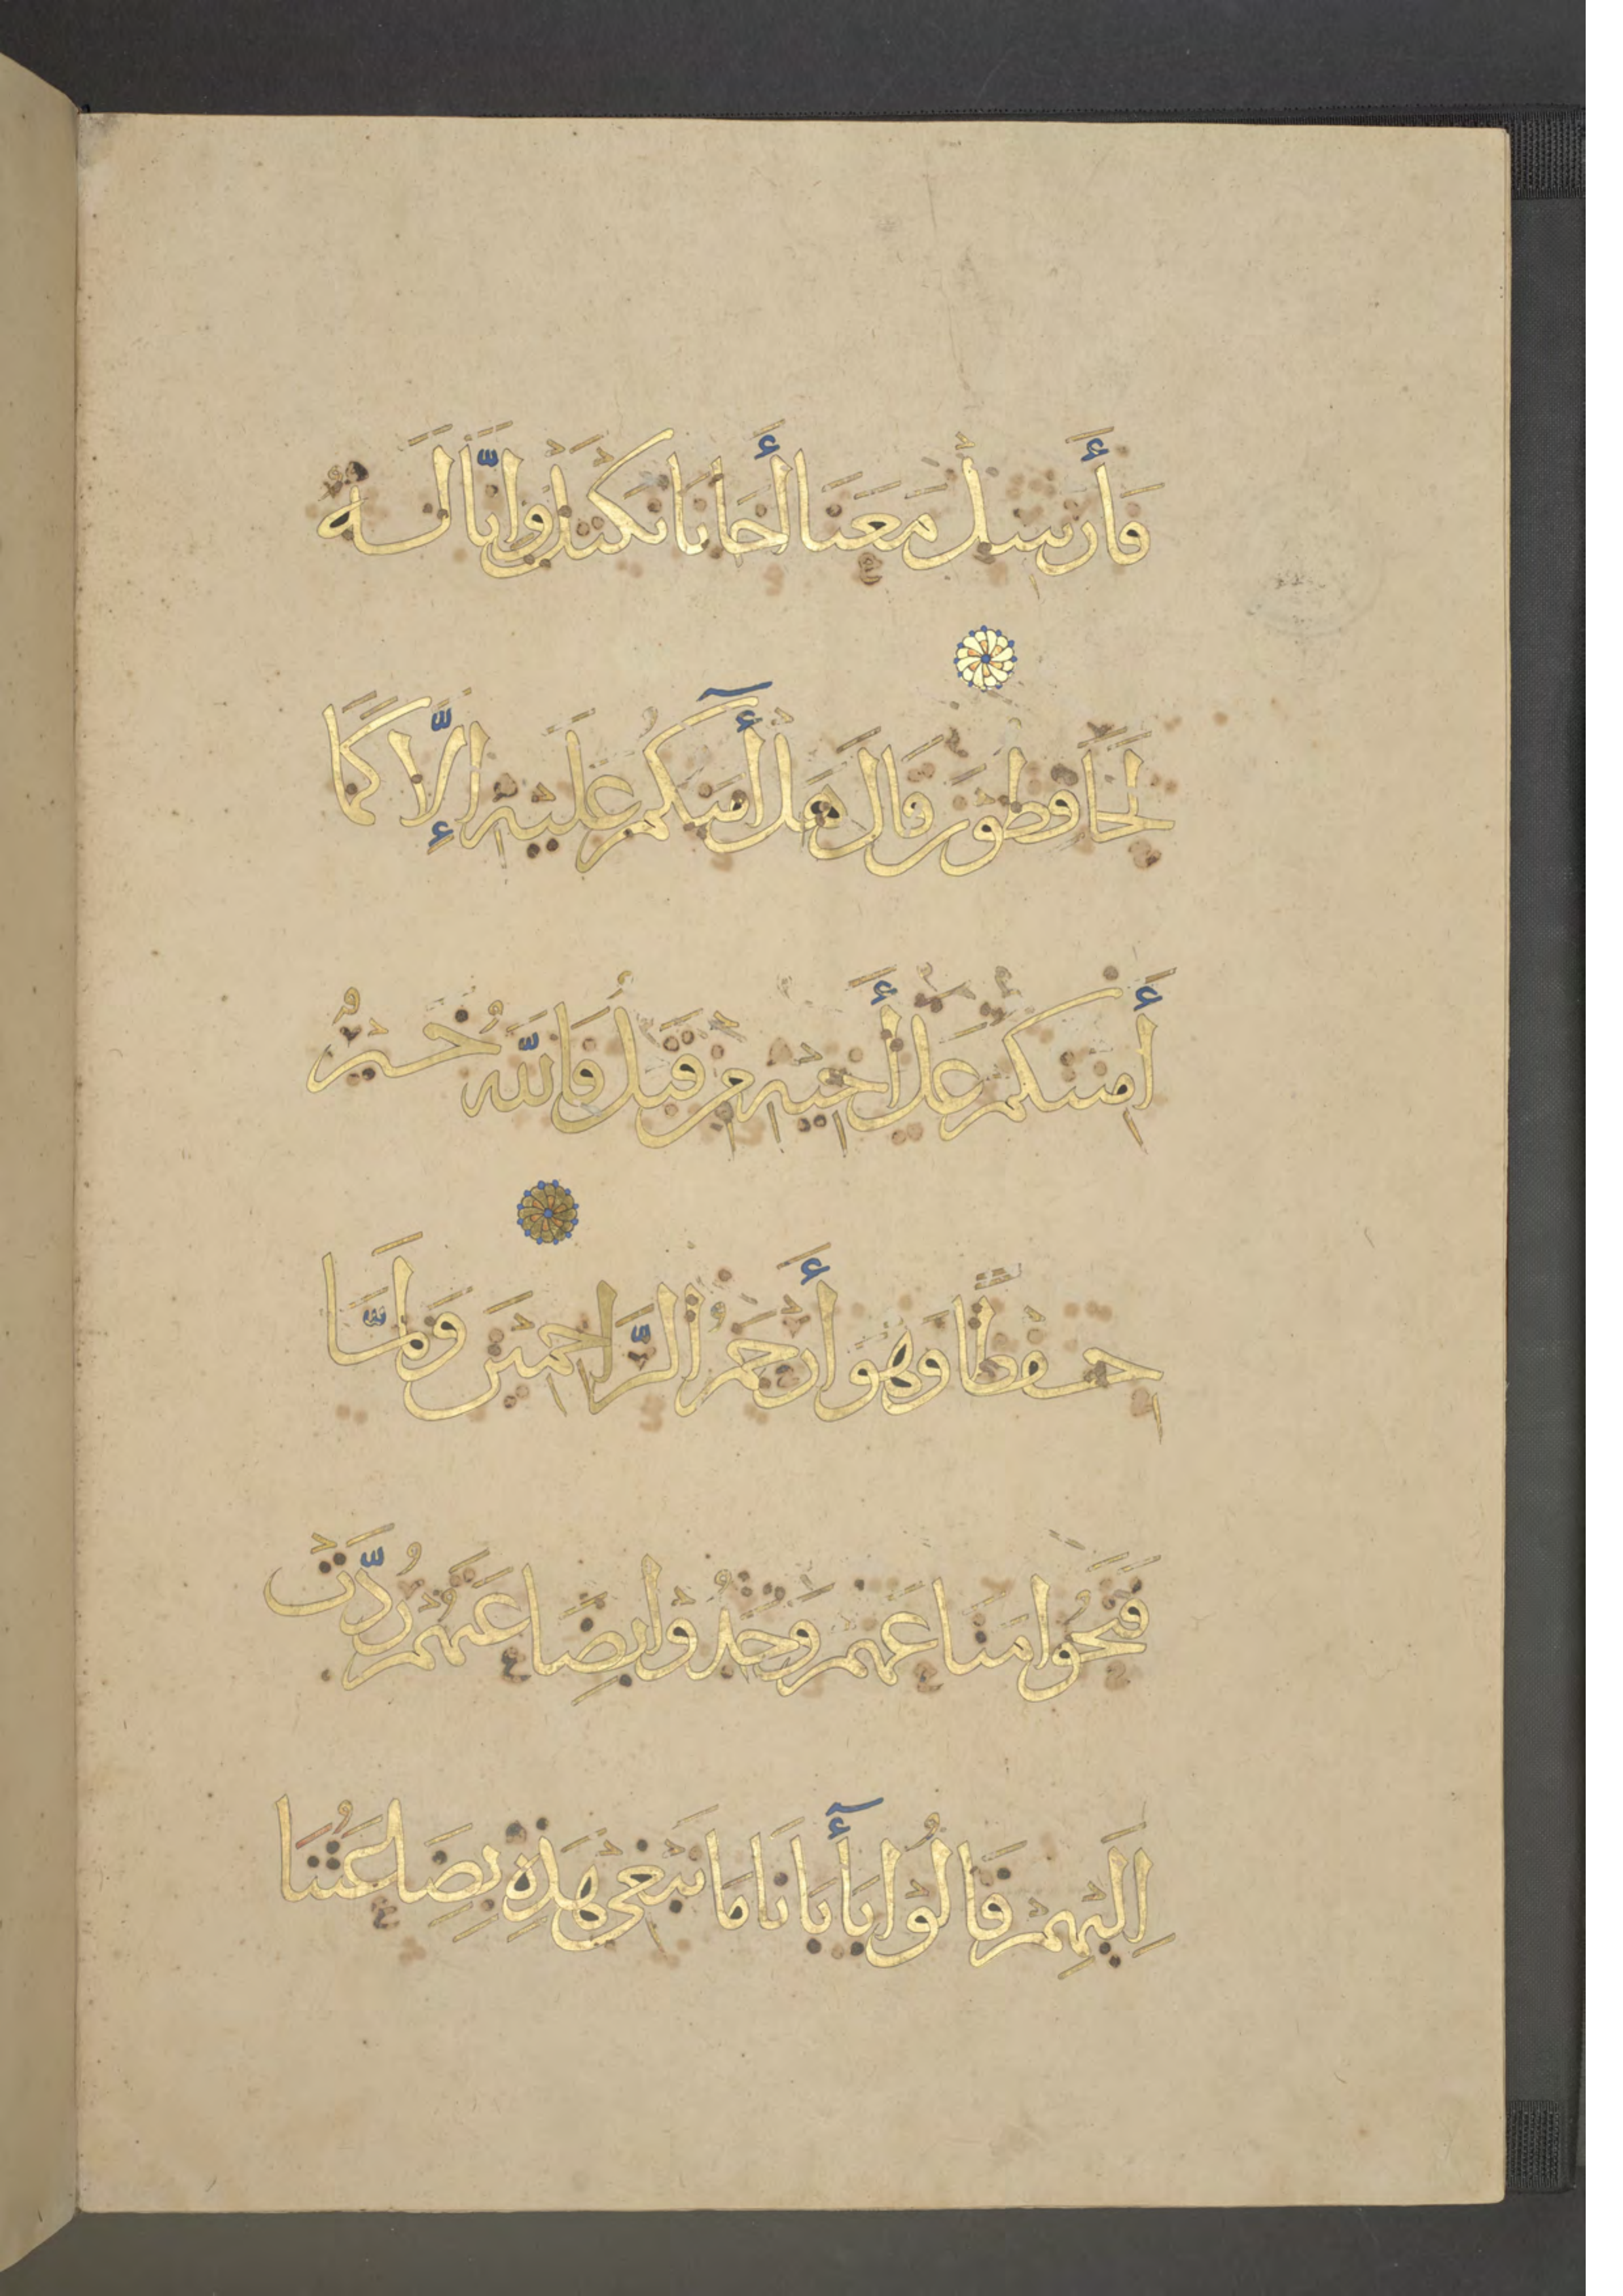 فَأَرْسِلْ مَعَنَا أَخَانَا نَكْتَلْ وَإِنَّا لَهُ
لَحَافِظُونَ قَالَ هَلْ آمَنُكُمْ عَلَيْهِ إِلَّا كَمَا
أَمِنْتُكُمْ عَلَى أَخِيهِ مِنْ قَبْلُ فَاللَّهُ خَيْرٌ
حِفْظًا وَهُوَ أَرْحَمُ الرَّاحِمِينَ وَلَمَّا
فَتَحُوا مَتَاعَهُمْ وَجَدُوا بِضَاعَتَهُمْ رُدَّتْ
إِلَيْهِمْ قَالُوا يَا أَبَانَا مَا نَبْغِي هَذِهِ بِضَاعَتُنَا